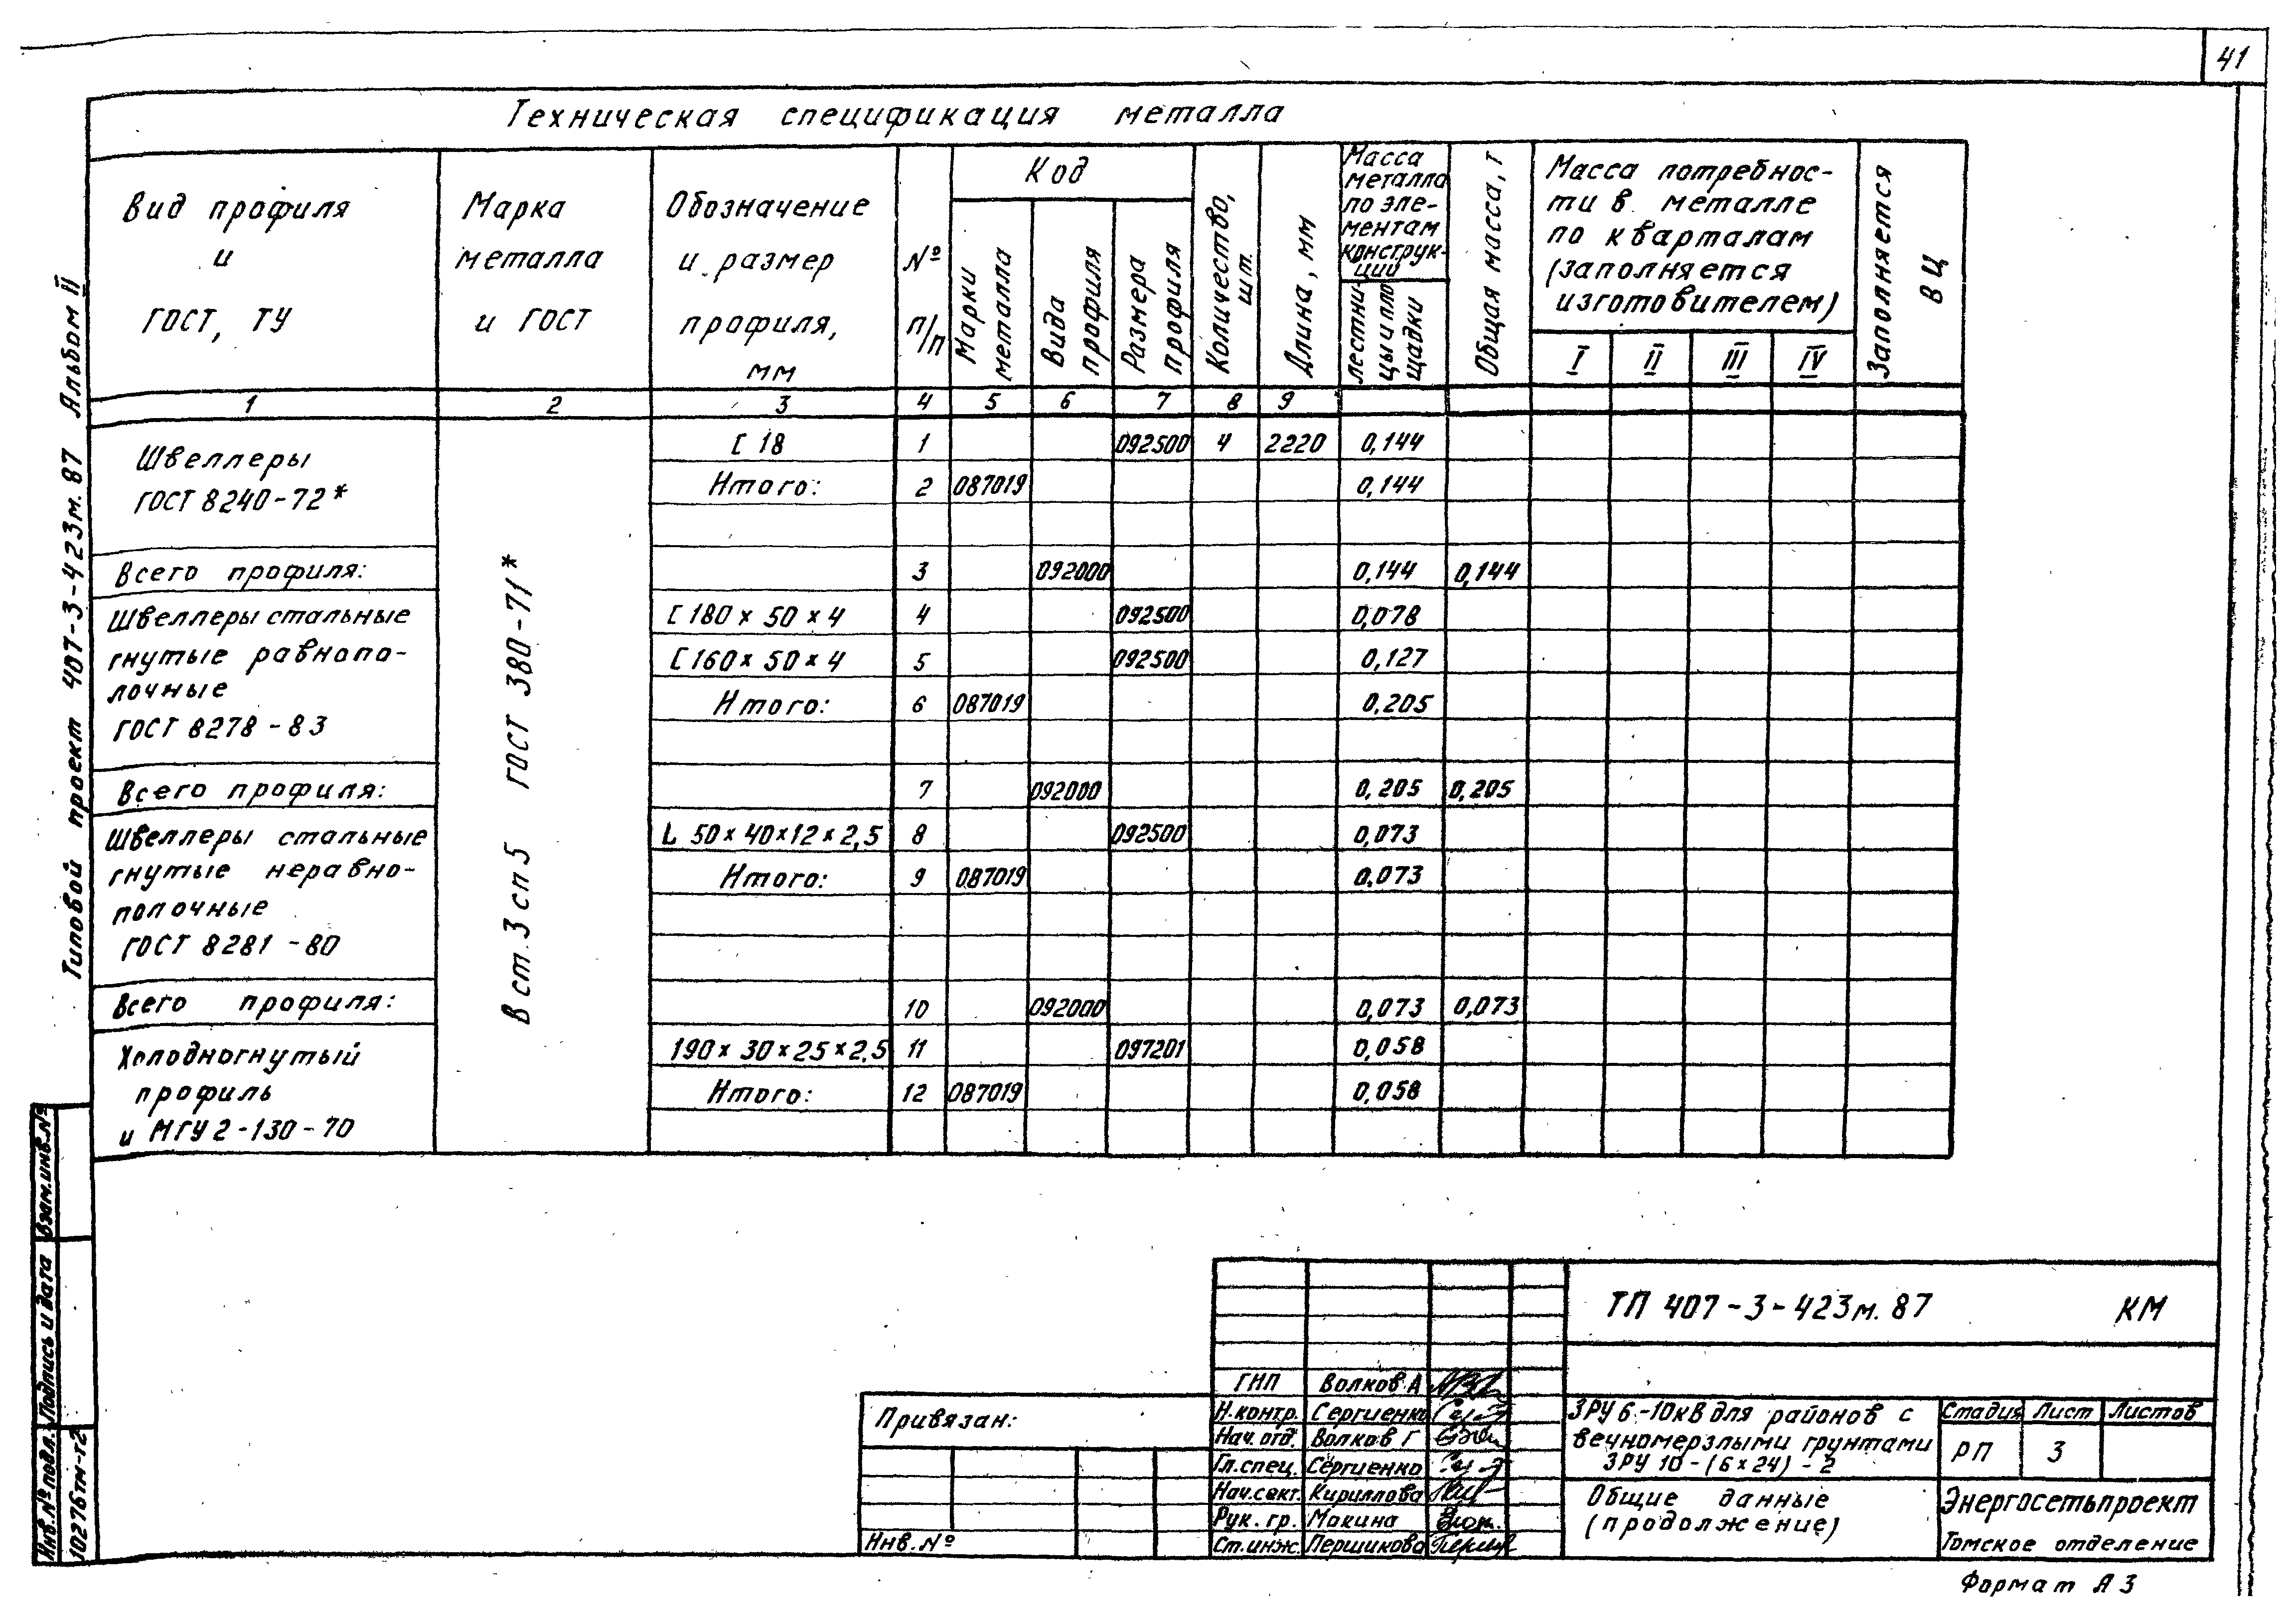 41
Техническая спецификация металла
Вид профиля
и
ГОСТ, ТУ
Марка
металла
и ГОСТ
Обозначение
и размер
профиля,
мм
№
п/п
Код
Марки
металла
Вида
профиля
Размера
профиля
Количество,
шт.
Длина, мм
Масса
металла
по эле-
ментам
конструк-
ции
лестни-
цы и пло
щадки
Общая масса, т
Масса потребнос-
ти в металле
по кварталам
(заполняется
изготовителем)
I II III IV
Заполняется
ВЦ
1 2 3 4 5 6 7 8 9
Швеллеры
ГОСТ 8240-72*
В ст.3 сп 5 ГОСТ 380-71*
[ 18 1 092500 4 2220 0,144
Итого: 2 087019 0,144
Всего профиля: 3 092000 0,144 0,144
Швеллеры стальные
гнутые равнопо-
лочные
ГОСТ 8278-83
[ 180 x 50 x 4 4 092500 0,078
[ 160 x 50 x 4 5 092500 0,127
Итого: 6 087019 0,205
Всего профиля: 7 092000 0,205 0,205
Швеллеры стальные
гнутые неравно-
полочные
ГОСТ 8281-80
L 50x40x12x2,5 8 092500 0,073
Итого: 9 087019 0,073
Всего профиля: 10 092000 0,073 0,073
Холодногнутый
профиль
и МГУ 2-130-70
190x30x25x2,5 11 097201 0,058
Итого: 12 087019 0,058
Типовой проект 407-3-423м.87 Альбом II
Инв.№ подл. Подпись и дата Взам.инв.№
10276тм-т2
Привязан:
Инв.№
ТП 407-3-423м.87 КМ
ГИП Волков А
Н.контр. Сергиенко
Нач.отд. Волков Г
Гл.спец. Сергиенко
Нач.сект. Кириллова
Рук.гр. Макина
Ст.инж. Першикова
ЗРУ 6-10кВ для районов с
вечномерзлыми грунтами
ЗРУ 10-(6x24)-2
Стадия Лист Листов
РП 3
Общие данные
(продолжение)
Энергосетьпроект
Томское отделение
Формат А3